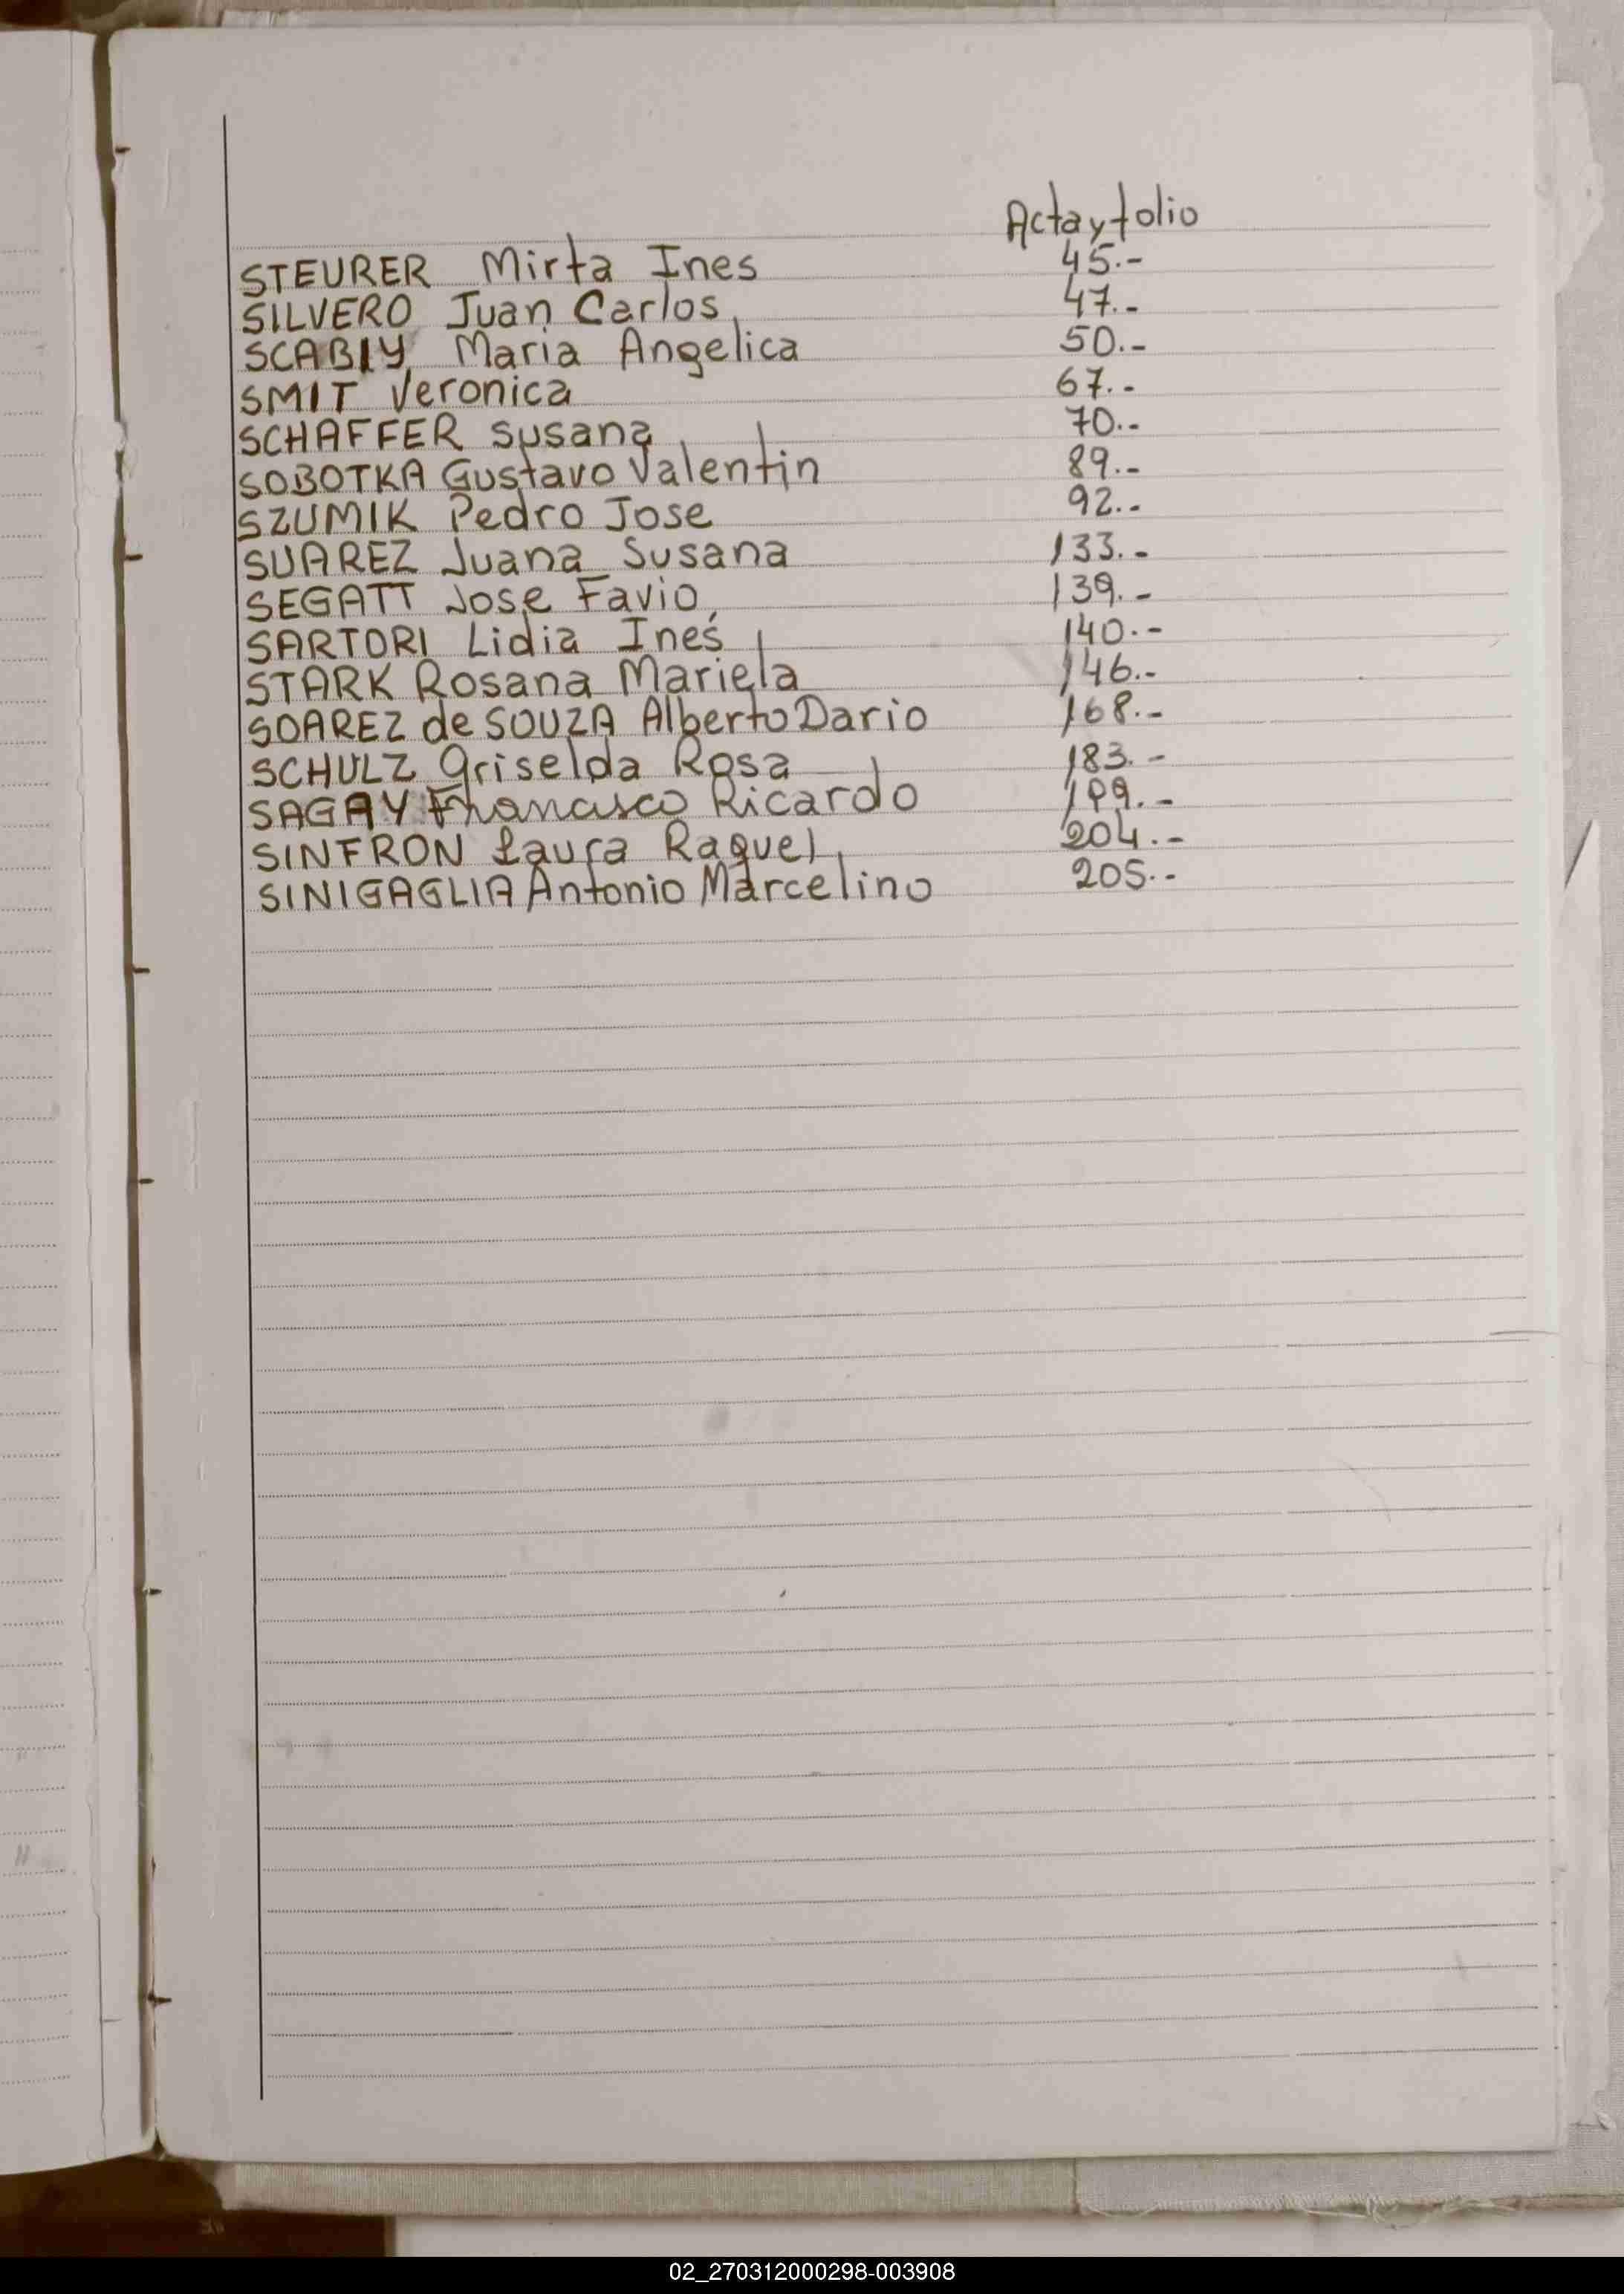 Acta y folio
STEURER Mirta Ines 45.-
SILVERO Juan Carlos 47.-
SCABIY Maria Angelica 50.-
SMIT Veronica 67.-
SCHAFFER Susana 70.-
SOBOTKA Gustavo Valentin 89.-
SZUMIK Pedro Jose 92.-
SUAREZ Juana Susana 133.-
SEGATT Jose Favio 139.-
SARTORI Lidia Inés 140.-
STARK Rosana Mariela 146.-
SOAREZ de SOUZA Alberto Dario 168.-
SCHULZ Griselda Rosa 183.-
SAGAY Francisco Ricardo 199.-
SINFRON Laura Raquel 204.-
SINIGAGLIA Antonio Marcelino 205.-
02_270312000298-003908